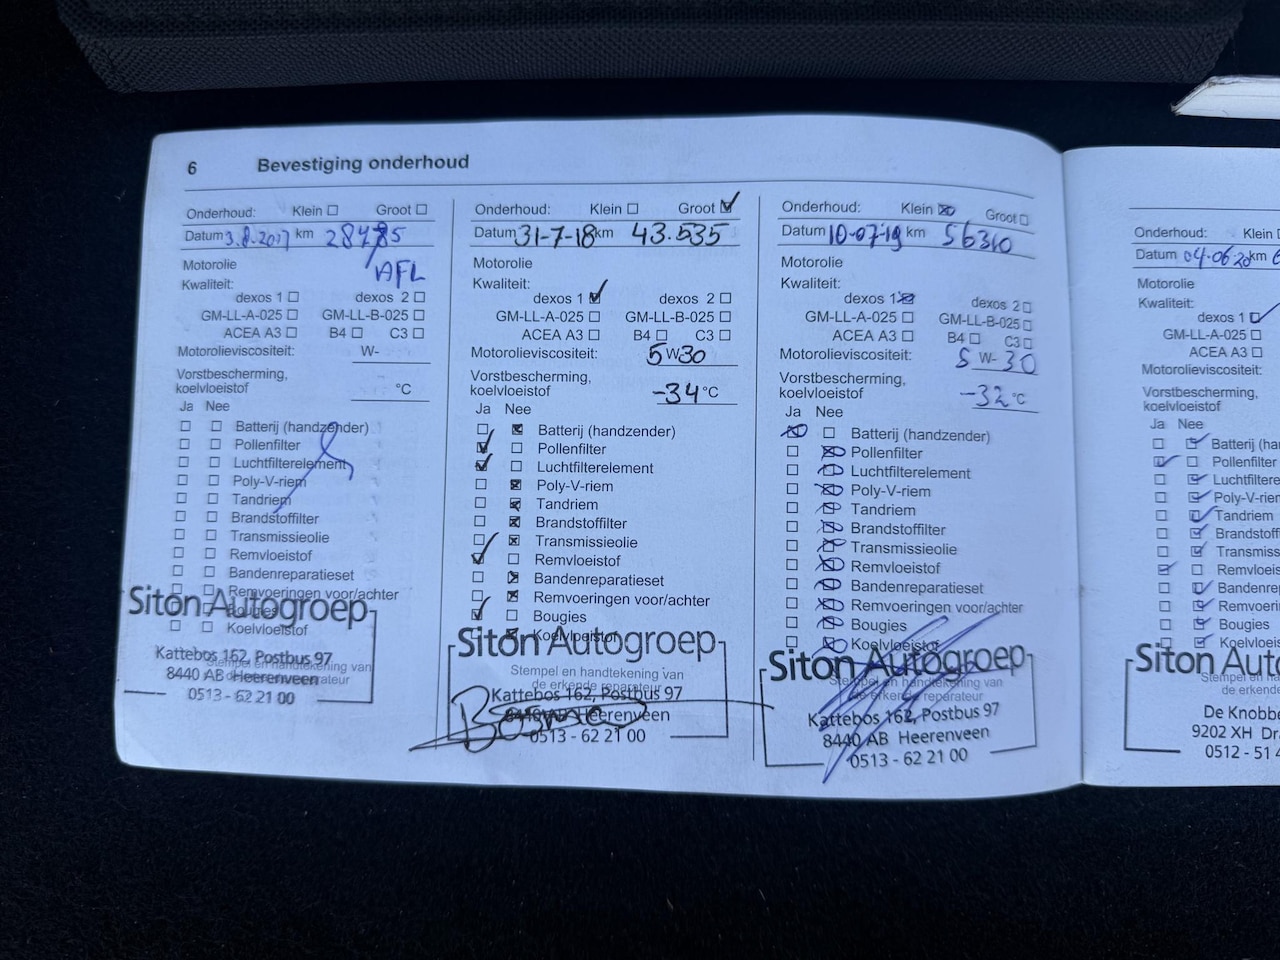 6 Bevestiging onderhoud
Onderhoud: Klein Groot
Datum 3.8.2017 km 28485
Motorolie AFL
Kwaliteit:
dexos 1 dexos 2
GM-LL-A-025 GM-LL-B-025
ACEA A3 B4 C3
Motorolieviscositeit: W-
Vorstbescherming,
koelvloeistof °C
Ja Nee
Batterij (handzender)
Pollenfilter
Luchtfilterelement
Poly-V-riem
Tandriem
Brandstoffilter
Transmissieolie
Remvloeistof
Bandenreparatieset
Remvoeringen voor/achter
Bougies
Koelvloeistof
Siton Autogroep
Stempel en handtekening van
Kattebos 162, Postbus 97
8440 AB Heerenveen
0513 - 62 21 00
Onderhoud: Klein Groot
Datum 31-7-18 km 43.535
Motorolie
Kwaliteit:
dexos 1 dexos 2
GM-LL-A-025 GM-LL-B-025
ACEA A3 B4 C3
Motorolieviscositeit: 5 W 30
Vorstbescherming,
koelvloeistof -34 °C
Ja Nee
Batterij (handzender)
Pollenfilter
Luchtfilterelement
Poly-V-riem
Tandriem
Brandstoffilter
Transmissieolie
Remvloeistof
Bandenreparatieset
Remvoeringen voor/achter
Bougies
Koelvloeistof
Siton Autogroep
Stempel en handtekening van
de erkende reparateur
Kattebos 162, Postbus 97
8440 AB Heerenveen
0513 - 62 21 00
Onderhoud: Klein Groot
Datum 10-07-19 km 56310
Motorolie
Kwaliteit:
dexos 1 dexos 2
GM-LL-A-025 GM-LL-B-025
ACEA A3 B4 C3
Motorolieviscositeit: 5 W- 30
Vorstbescherming,
koelvloeistof -32 °C
Ja Nee
Batterij (handzender)
Pollenfilter
Luchtfilterelement
Poly-V-riem
Tandriem
Brandstoffilter
Transmissieolie
Remvloeistof
Bandenreparatieset
Remvoeringen voor/achter
Bougies
Koelvloeistof
Siton Autogroep
Stempel en handtekening van
de erkende reparateur
Kattebos 162, Postbus 97
8440 AB Heerenveen
0513 - 62 21 00
Onderhoud: Klein
Datum 04-06-20 km 6
Motorolie
Kwaliteit:
dexos 1
GM-LL-A-025
ACEA A3
Motorolieviscositeit:
Vorstbescherming,
koelvloeistof
Ja Nee
Batterij (han
Pollenfilter
Luchtfiltere
Poly-V-rie
Tandriem
Brandstoff
Transmiss
Remvloeis
Bandenre
Remvoeri
Bougies
Koelvloeis
Siton Auto
Stempel en ha
de erkende
De Knobbe
9202 XH Dra
0512 - 51 4